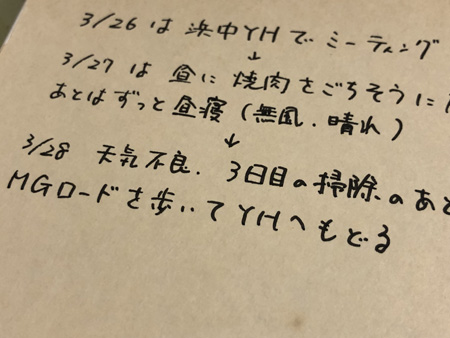 3/26 は 浜中YHで ミーティング
↓
3/27 は 昼に 焼肉をごちそうに
あとはずっと昼寝 (無風.晴れ)
↓
3/28 天気不良. 3日目の掃除のあと
MGロードを歩いてYHへもどる